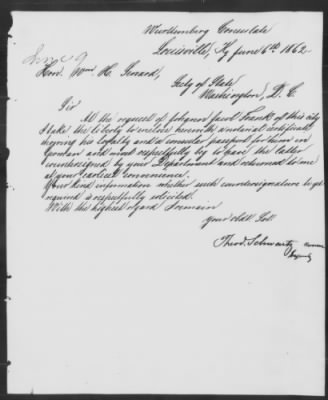 Württemberg Consulate
Louisville, Ky June 6th 1862
June 9
Hon. Wm. H. Seward,
Secty of State
Washington, D. C.
Sir
At the request of Jacob Frank of this city
I take the liberty to enclose herewith a notarial certificate
showing his loyalty and a consular passport for him in
German and most respectfully beg to have the latter
countersigned by your Department and returned to me
at your earliest convenience.
Your kind information whether such countersignature be yet
required is respectfully solicited.
With the highest regard I remain
Your obdt Svt
Theod. Schwartz